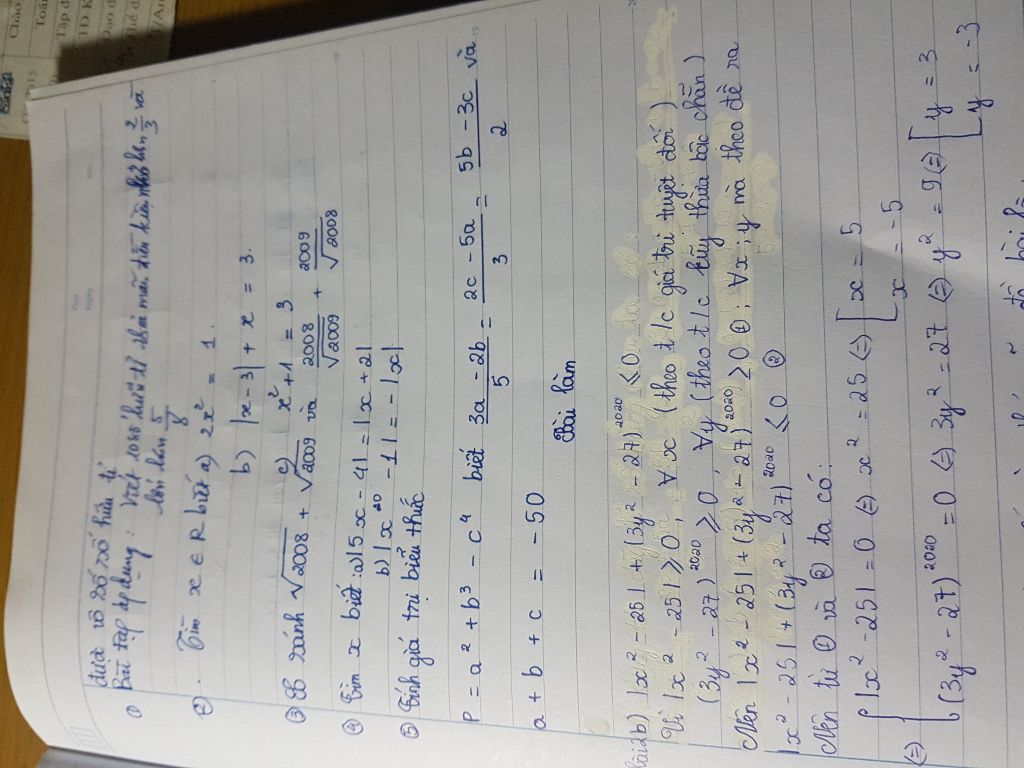 Chào
Toán
Tập đ
TD.K
đưa về số hữu tỉ
Bài tập áp dụng:
① Viết 10 số hữu tỉ thỏa mãn điều kiện nhỏ hơn 2/3 và
lớn hơn 5/8
②. Tìm x ∈ R biết a) 2x² = 1.
b) |x - 3| + x = 3.
c) x² + 1 = 3
③ So sánh √2008 + √2009 và 2008/√2009 + 2009/√2008
④ Tìm x biết: a) |5x - 4| = |x + 2|
b) |x²⁰ - 1| = - |x|
⑤ Tính giá trị biểu thức
P = a² + b³ - c⁴ biết (3a - 2b)/5 = (2c - 5a)/3 = (5b - 3c)/2 và
a + b + c = -50
Bài làm
Bài 2b) |x² - 25| + (3y² - 27)²⁰²⁰ ≤ 0
Vì |x² - 25| ≥ 0, ∀x (theo t/c giá trị tuyệt đối)
(3y² - 27)²⁰²⁰ ≥ 0, ∀y (theo t/c lũy thừa bậc chẵn)
Nên |x² - 25| + (3y² - 27)²⁰²⁰ ≥ 0 ①, ∀x; y mà theo đề ra
|x² - 25| + (3y² - 27)²⁰²⁰ ≤ 0 ②
Nên từ ① và ② ta có:
|x² - 25| = 0 ⇔ x² = 25 ⇔ [x = 5
x = -5
⇔ { (3y² - 27)²⁰²⁰ = 0 ⇔ 3y² = 27 ⇔ y² = 9 ⇔ [y = 3
y = -3